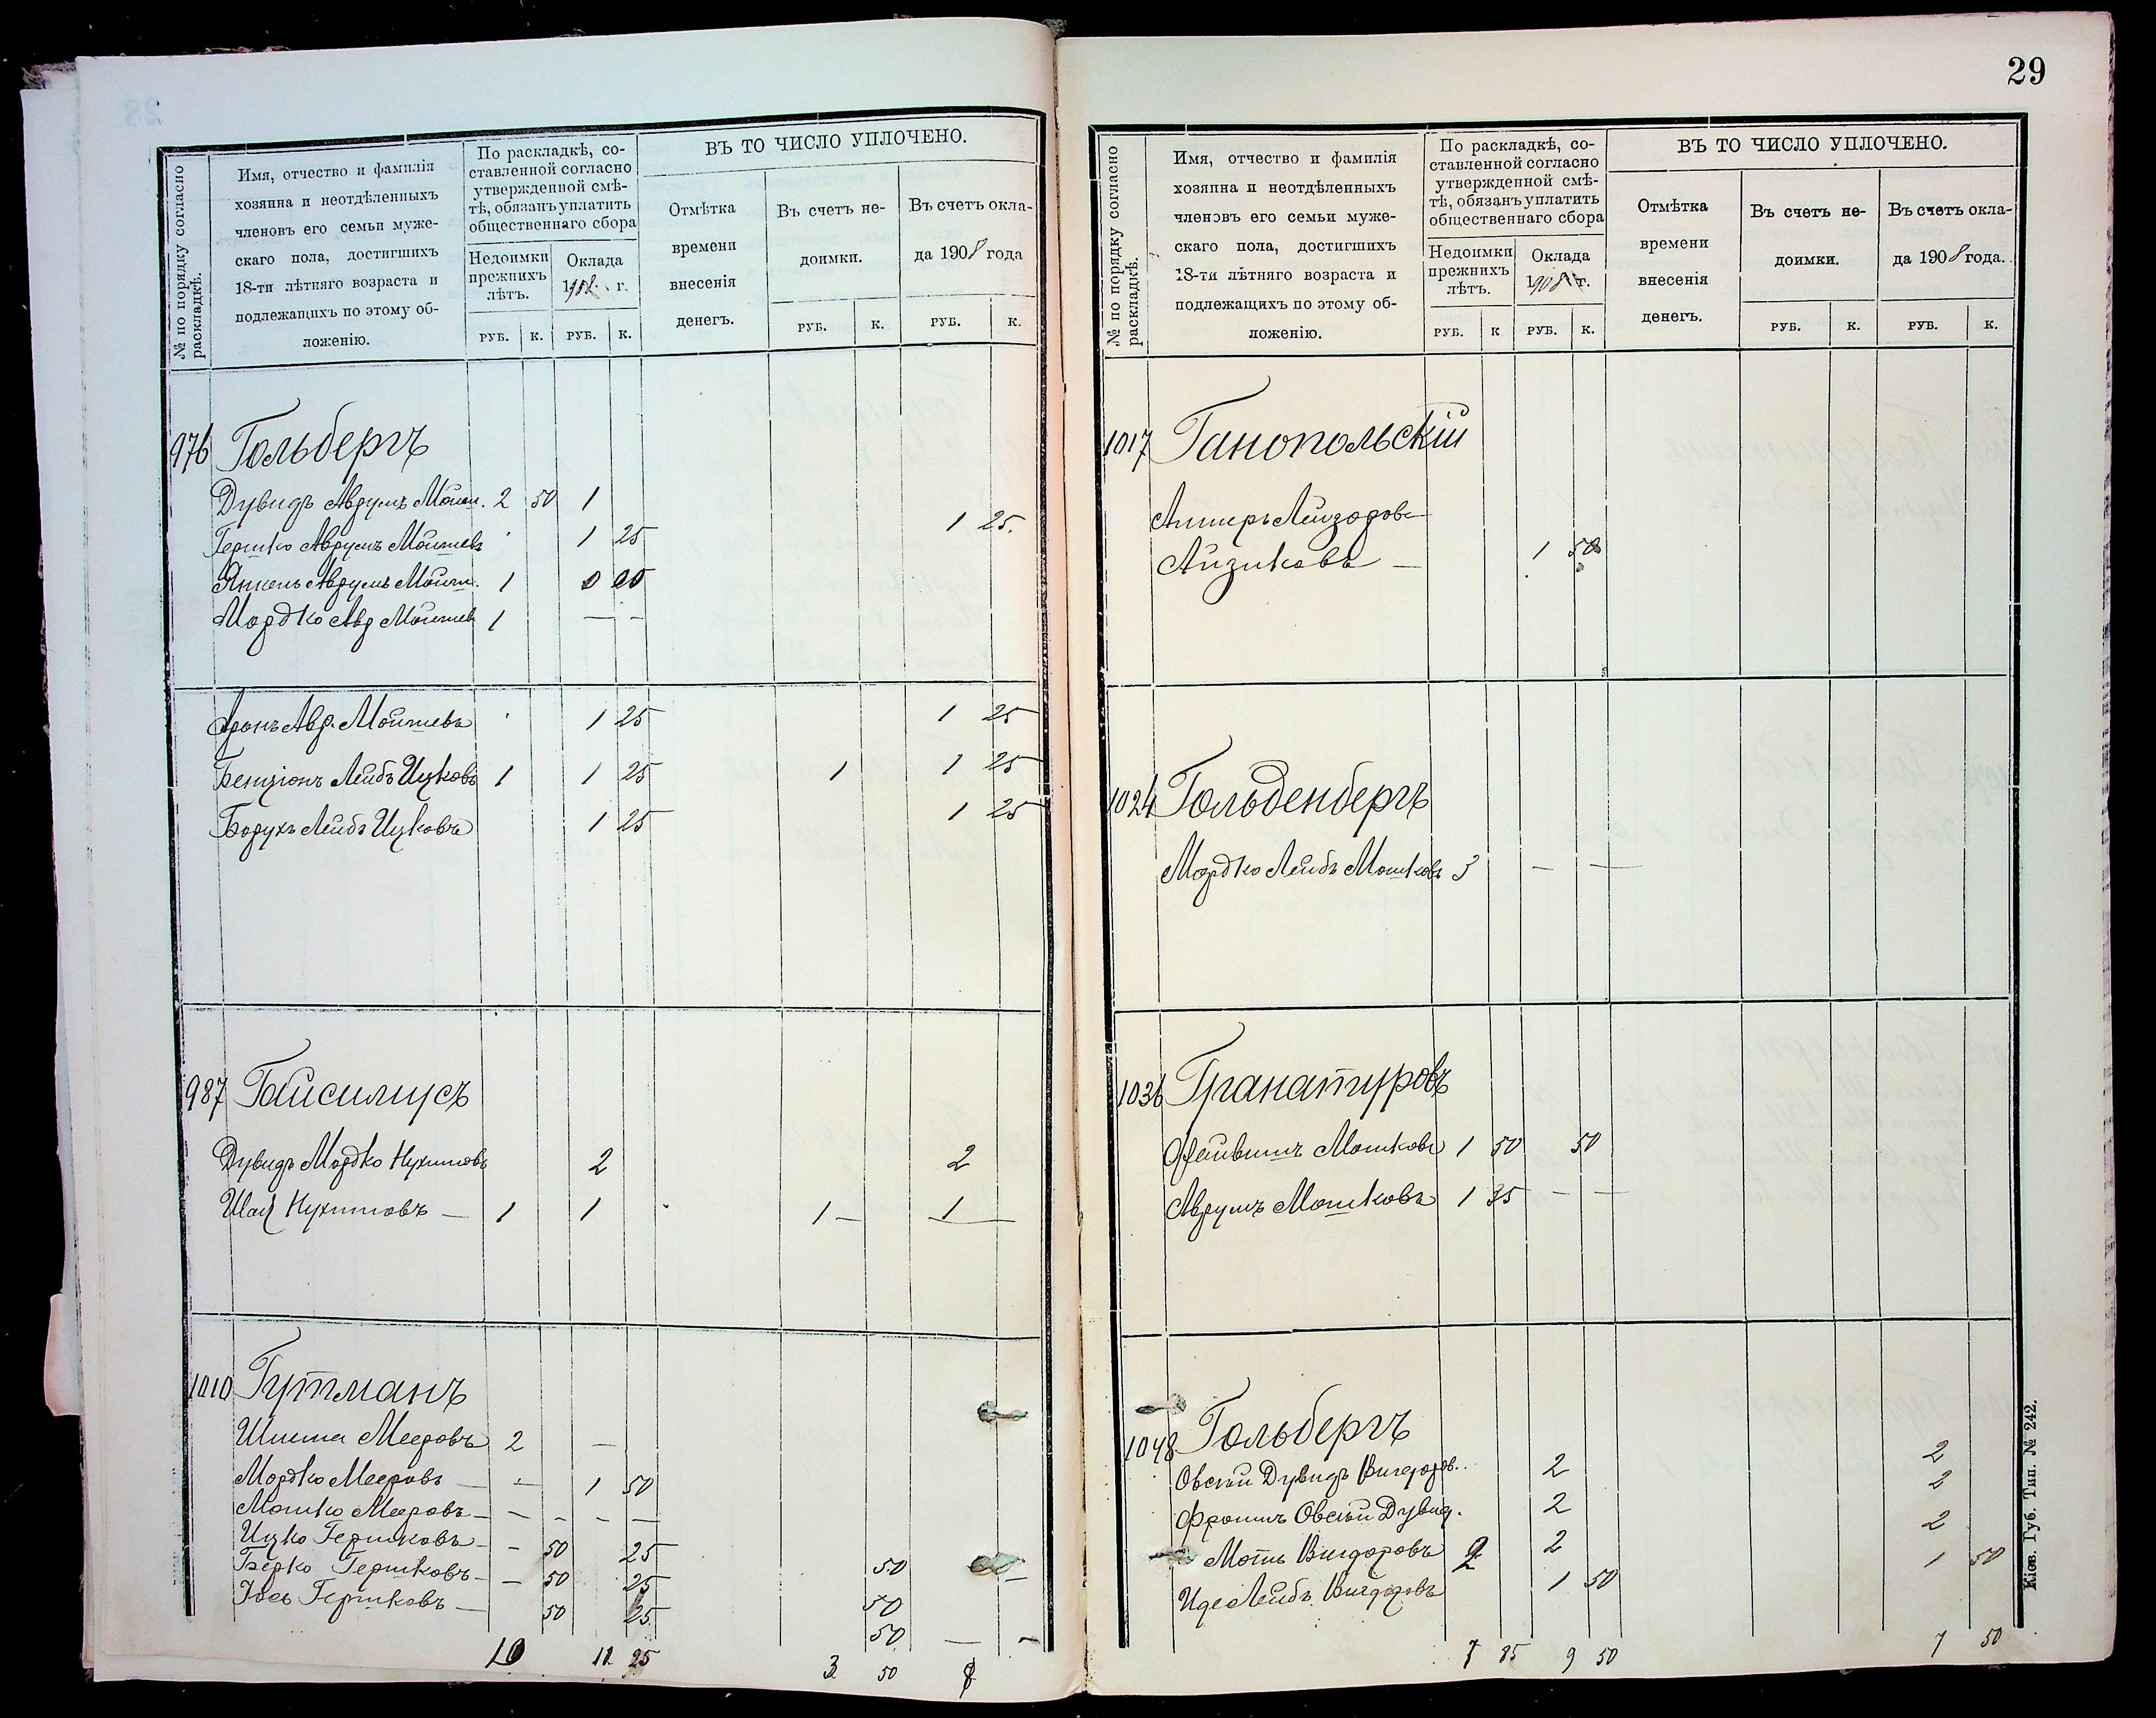 29
№ по порядку согласно раскладкѣ.
Имя, отчество и фамилія
хозяина и неотдѣленныхъ
членовъ его семьи муже-
скаго пола, достигшихъ
18-ти лѣтняго возраста и
подлежащихъ по этому об-
ложенію.
По раскладкѣ, со-
ставленной согласно
утвержденной смѣ-
тѣ, обязанъ уплатить
общественнаго сбора
Недоимки
прежнихъ
лѣтъ.
Оклада
1908 г.
РУБ. К. РУБ. К.
ВЪ ТО ЧИСЛО УПЛОЧЕНО.
Отмѣтка
времени
внесенія
денегъ.
Въ счетъ не-
доимки.
РУБ. К.
Въ счетъ окла-
да 1908 года
РУБ. К.
976 Гольбергъ
Дувидъ Аврумъ Мош. 2 50 1
Гершко Аврумъ Мошковъ 1 25 1 25.
Янкель Аврумъ Мошк. 1
Мордко Авр Мошков 1 — —
Аронъ Авр. Мошковъ 1 25 1 25
Бенціонъ Лейбъ Ицковъ 1 1 25 1 1 25
Борухъ Лейбъ Ицковъ 1 25 1 25
987 Гайсилусъ
Дувидъ Мордко Нухимовъ 2 2
Шая Нухимовъ — 1 1 1 — 1
1010 Гутманъ
Мееровъ 2 —
Мордко Мееровъ — — 1 50
Мошко Мееровъ — — — — —
Ицко Гершковъ — — 50 25
Берко Гершковъ — — 50 25 50
Іось Гершковъ — 50 25 50
50 — —
10 11 25 3 50 8
№ по порядку согласно раскладкѣ.
Имя, отчество и фамилія
хозяина и неотдѣленныхъ
членовъ его семьи муже-
скаго пола, достигшихъ
18-ти лѣтняго возраста и
подлежащихъ по этому об-
ложенію.
По раскладкѣ, со-
ставленной согласно
утвержденной смѣ-
тѣ, обязанъ уплатить
общественнаго сбора
Недоимки
прежнихъ
лѣтъ.
Оклада
1908 г.
РУБ. К РУБ. К.
ВЪ ТО ЧИСЛО УПЛОЧЕНО.
Отмѣтка
времени
внесенія
денегъ.
Въ счетъ не-
доимки.
РУБ. К.
Въ счетъ окла-
да 1908 года.
РУБ. К.
1017 Ганопольскій
Аншеръ Лейзоровъ
Айзиковъ — 1 50
1024 Гольденбергъ
Мордко Лейбъ Мошковъ 3 — —
1036 Гранатуровъ
Фейвишъ Мошковъ 1 50 50
Аврумъ Мошковъ 1 35 — —
1048 Гольбергъ
Овсѣй Дувидъ Вигдоров. 2 2
Фроимъ Овсѣй Дувид. 2 2
Моть Вигдоровъ 2 2 2
Иде Лейбъ Вигдоровъ 1 50 1 50
7 85 9 50 7 50
Кіев. Губ. Тип. № 242.